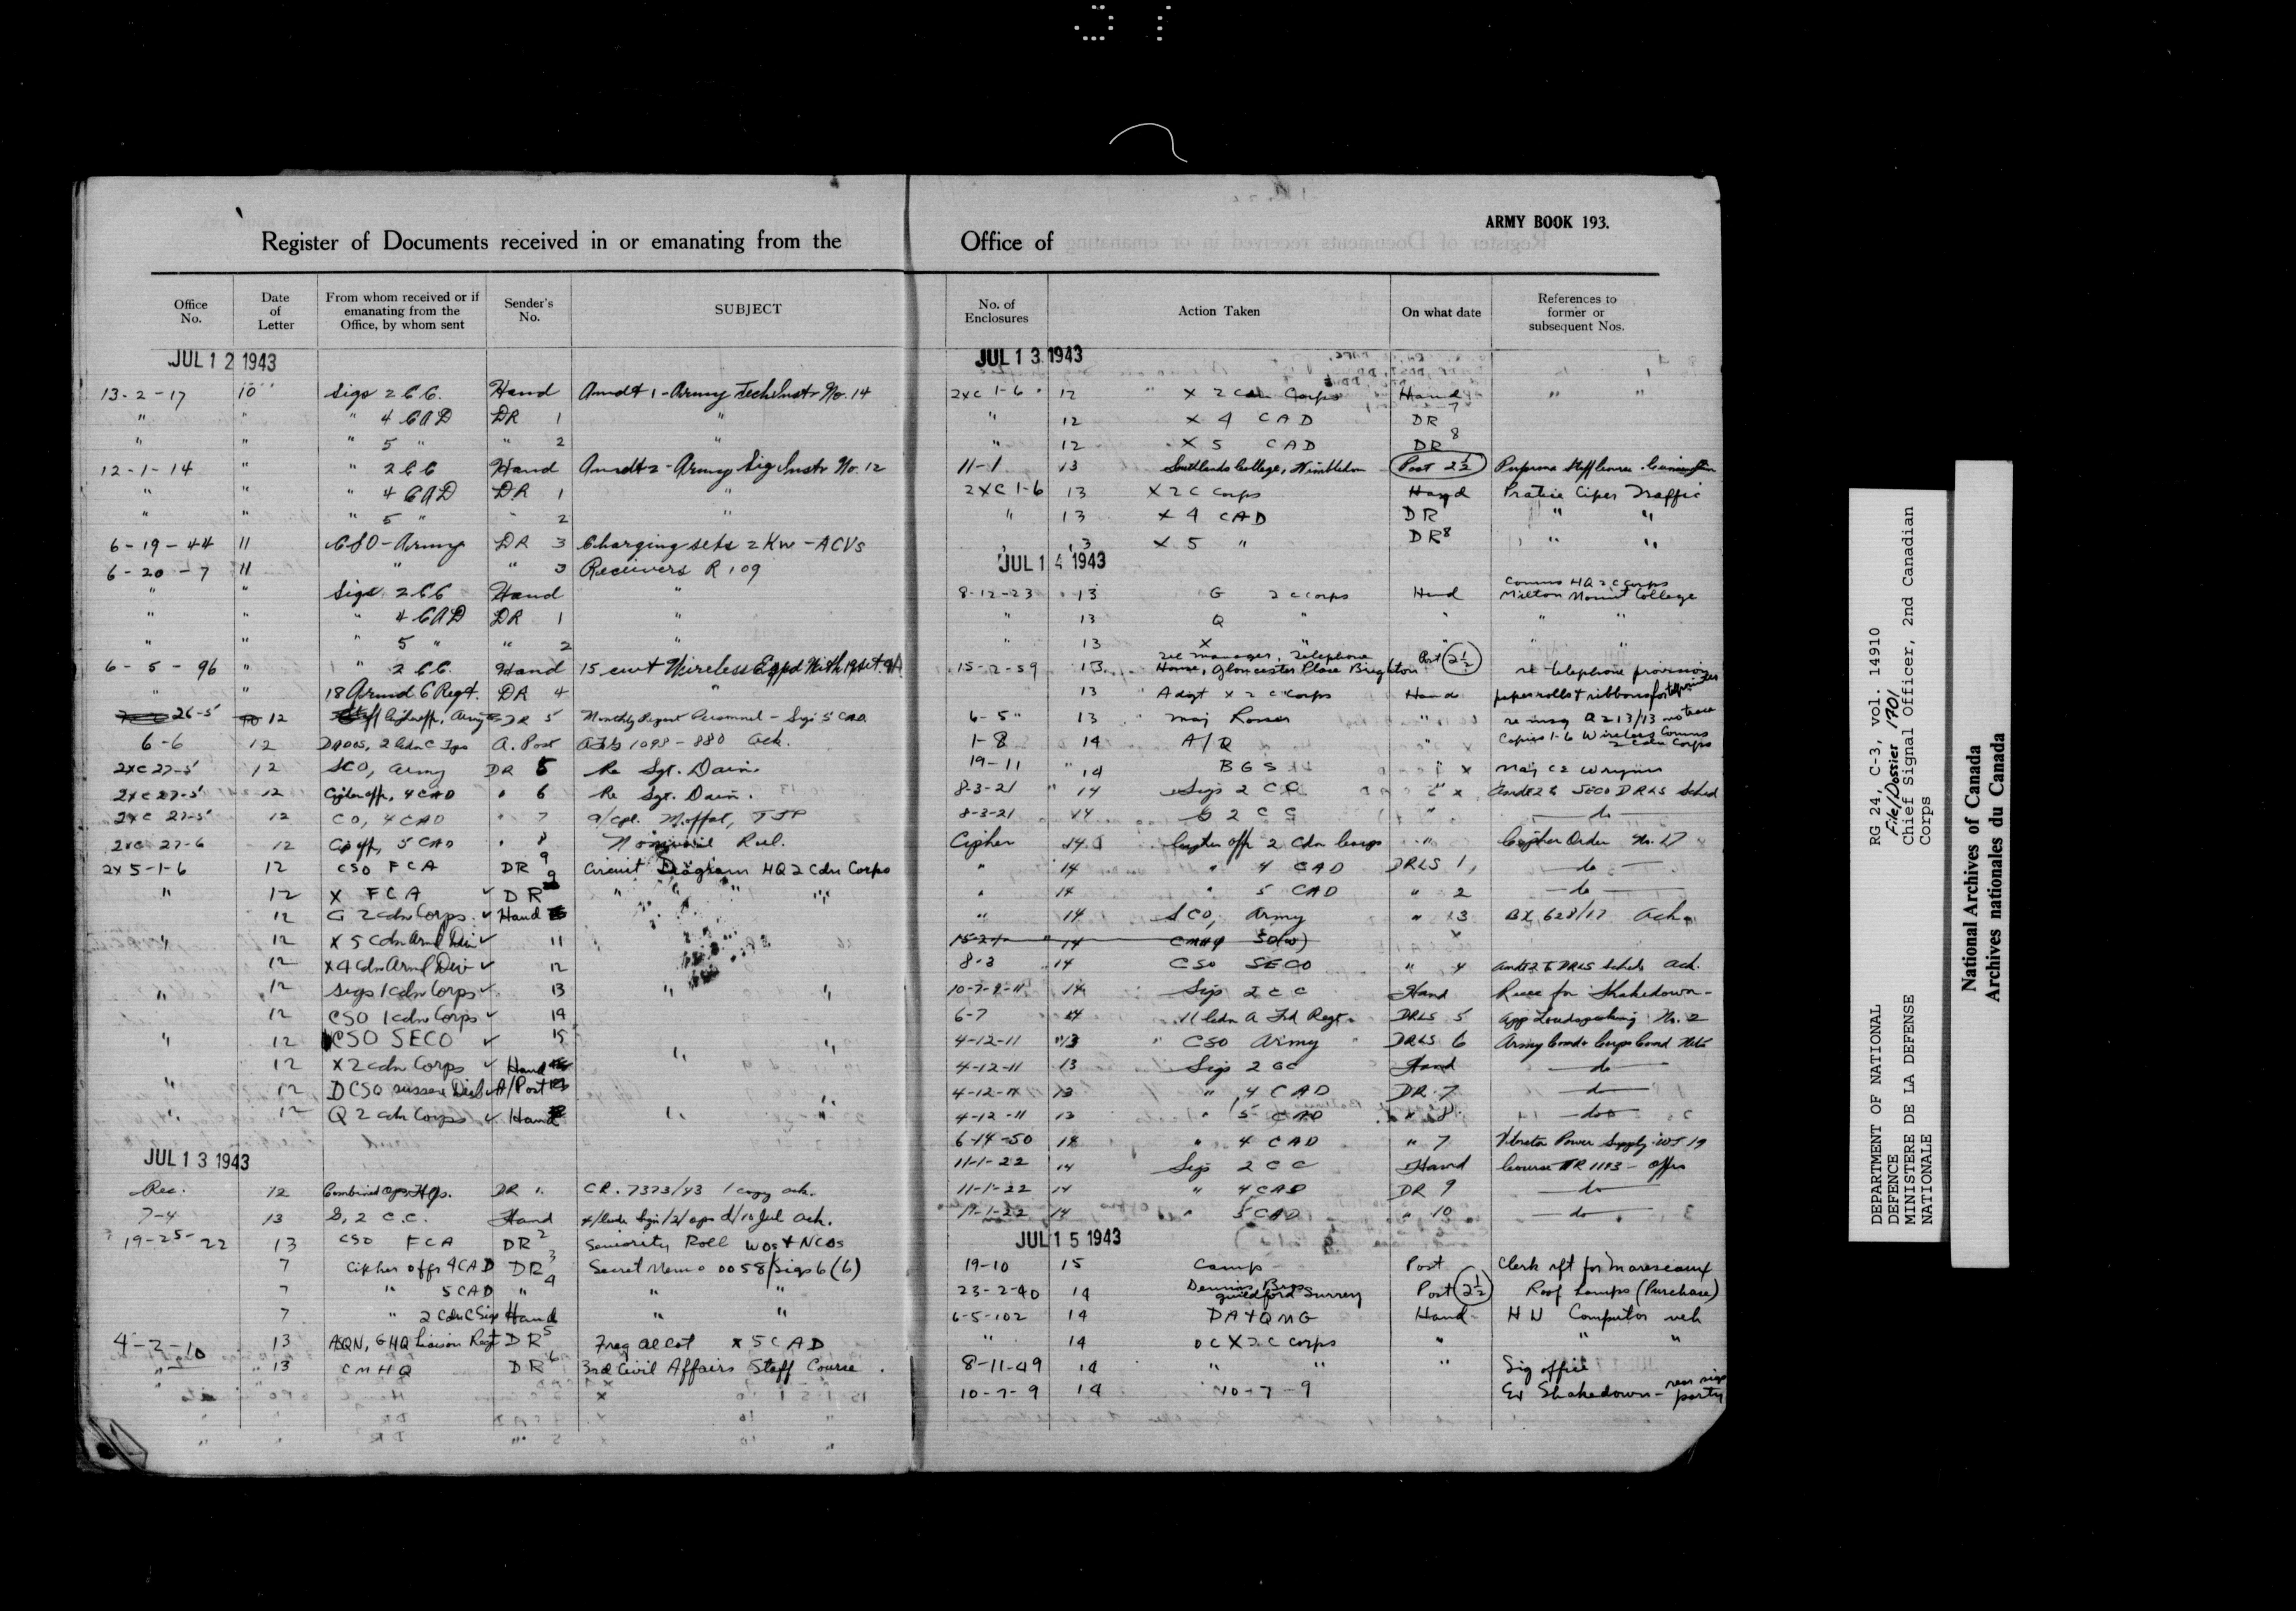 ARMY BOOK 193.
Register of Documents received in or emanating from the
Office No. Date of Letter From whom received or if emanating from the Office, by whom sent Sender's No. SUBJECT
JUL 12 1943
13-2-17 10 Sigs 2 CC. Hand Amdt 1 - Army Tech Instr No. 14
" " " 4 CAD DR 1 "
" " " 5 " " 2 "
12-1-14 " " 2 CC Hand Amdt 2 - Army Sig Instr No. 12
" " " 4 CAD DR 1 "
" " " 5 " " 2 "
6-19-44 11 CSO - Army DR 3 Charging sets 2 Kw - ACVs
6-20-7 11 " " 3 Receivers R 109
" " Sigs 2 CC Hand "
" " " 4 CAD DR 1 "
" " " 5 " " 2 "
6-5-96 " " 2 CC. Hand 15 cwt Wireless Eqpd With 19 set
" " 18 Armd C Regt. DR 4 "
26-5 12 Army DR 5 Monthly Report Personnel - Sigs 5 CAD
6-6 12 DADOS, 2 Cdn C Tps A. Post 1098-880 Ack.
2XC 27-5 12 SCO, Army DR 5 Re Sgt. Dain.
2XC 27-5 12 Cipher off, 4 CAD " 6 Re Sgt. Dain.
2XC 27-5 12 CO, 4 CAD " 7 a/cpl. Moffat,
2XC 27-6 12 5 CAD " 8 Nominal Roll.
2X5-1-6 12 CSO FCA DR 9 Circuit Diagram HQ 2 Cdn Corps
" 12 X FCA ✓ DR 9 " " " "
12 G 2 Cdn Corps ✓ Hand
" 12 X 5 Cdn Armd Div ✓ 11
12 X 4 Cdn Armd Div ✓ 12
" 12 Sigs 1 Cdn Corps ✓ 13 " "
12 CSO 1 Cdn Corps ✓ 14
" 12 CSO SECO ✓ 15
12 X 2 Cdn Corps ✓ Hand " "
" 12 DCSO Sussex Dist ✓ A/Post
" 12 Q 2 Cdn Corps ✓ Hand " "
JUL 13 1943
Rec. 12 Combined Ops Hqs. DR 1. CR. 7373/43 1 copy ack.
7-4 13 G, 2 C.C. Hand Jul Ack.
19-25-22 13 CSO FCA DR 2 Seniority Roll WOs & NCOs
7 Cipher offr 4 CAD DR 3 Secret Memo 0058/Sigs 6 (b)
7 " 5 CAD " 4 " "
7 " 2 Cdn C Sigs Hand " "
4-2-10 13 GHQ Liaison Regt DR 5 Freq allot X 5 CAD
" " 13 CMHQ DR 6 3rd Civil Affairs Staff Course.
Office of
No. of Enclosures Action Taken On what date References to former or subsequent Nos.
JUL 13 1943
2XC 1-6 12 X 2 Cdn Corps Hand " "
" 12 X 4 CAD DR 7
" 12 X 5 CAD DR 8
11-1 13 Southlands College, Wimbledon Post 2½ Staff Course
2XC 1-6 13 X 2 C Corps Hand Pratice Ciper Traffic
" 13 X 4 CAD DR " "
" 13 X 5 " DR 8 " "
JUL 14 1943
8-12-23 13 G 2 C Corps Hand Comms HQ 2 C Corps Milton Mount College
" 13 Q " " " "
" 13 X " " " "
15-2-59 13 Tel Manager, Telephone House, Gloucester Place Brighton Post 2½ re telephone provision
13 Adgt X 2 C Corps Hand paper rolls & ribbons for teleprinter
6-5 13 Maj Rosser " re insg
1-8 14 A/Q " Copies 1-6 Wireless Comms 2 Cdn Corps
19-11 14 BGS " X Maj
8-3-21 14 Sigs 2 CC " X Amdt 2 to SECO DRLS Sched
8-3-21 14 G 2 CC " do
Cipher 14 Cipher offr 2 Cdn Corps " Cipher Order No. 17
" 14 " 4 CAD DRLS 1 do
" 14 " 5 CAD " 2 do
" 14 SCO, Army " 3 BX 628/17 Ack
15-2 14 CMHQ SD(W)
8-3 14 CSO SECO " 4 Amdt 2 to DRLS Sched Ack.
10-7-9-11 14 Sigs 2 CC Hand Recce for Shakedown
6-7 14 11 Cdn A Fd Regt. DRLS 5 App Loudspeaking No. 2
4-12-11 13 CSO Army DRLS 6 Army Comd & Corps Comd Nets
4-12-11 13 Sigs 2 CC Hand do
4-12-11 13 " 4 CAD DR 7 do
4-12-11 13 " 5 CAD " 8 do
6-14-50 14 " 4 CAD " 7 Vibrator Power Supply WS 19
11-1-22 14 Sigs 2 CC Hand Course TR 1143 - offrs
11-1-22 14 " 4 CAD DR 9 do
11-1-22 14 " 5 CAD " 10 do
JUL 15 1943
19-10 15 Camp Post Clerk rft for
23-2-40 14 Dennis Bros Guildford Surrey Post 2½ Roof Lamps (Purchase)
6-5-102 14 DA & QMG Hand HU Computor veh
" 14 OC X 2 C Corps " " "
8-11-49 14 " " " Sig office
10-7-9 14 10-7-9 Ex Shakedown - rear sigs party
DEPARTMENT OF NATIONAL DEFENCE
MINISTERE DE LA DEFENSE NATIONALE
RG 24, C-3, vol. 14910
File/Dossier 1701
Chief Signal Officer, 2nd Canadian Corps
National Archives of Canada
Archives nationales du Canada